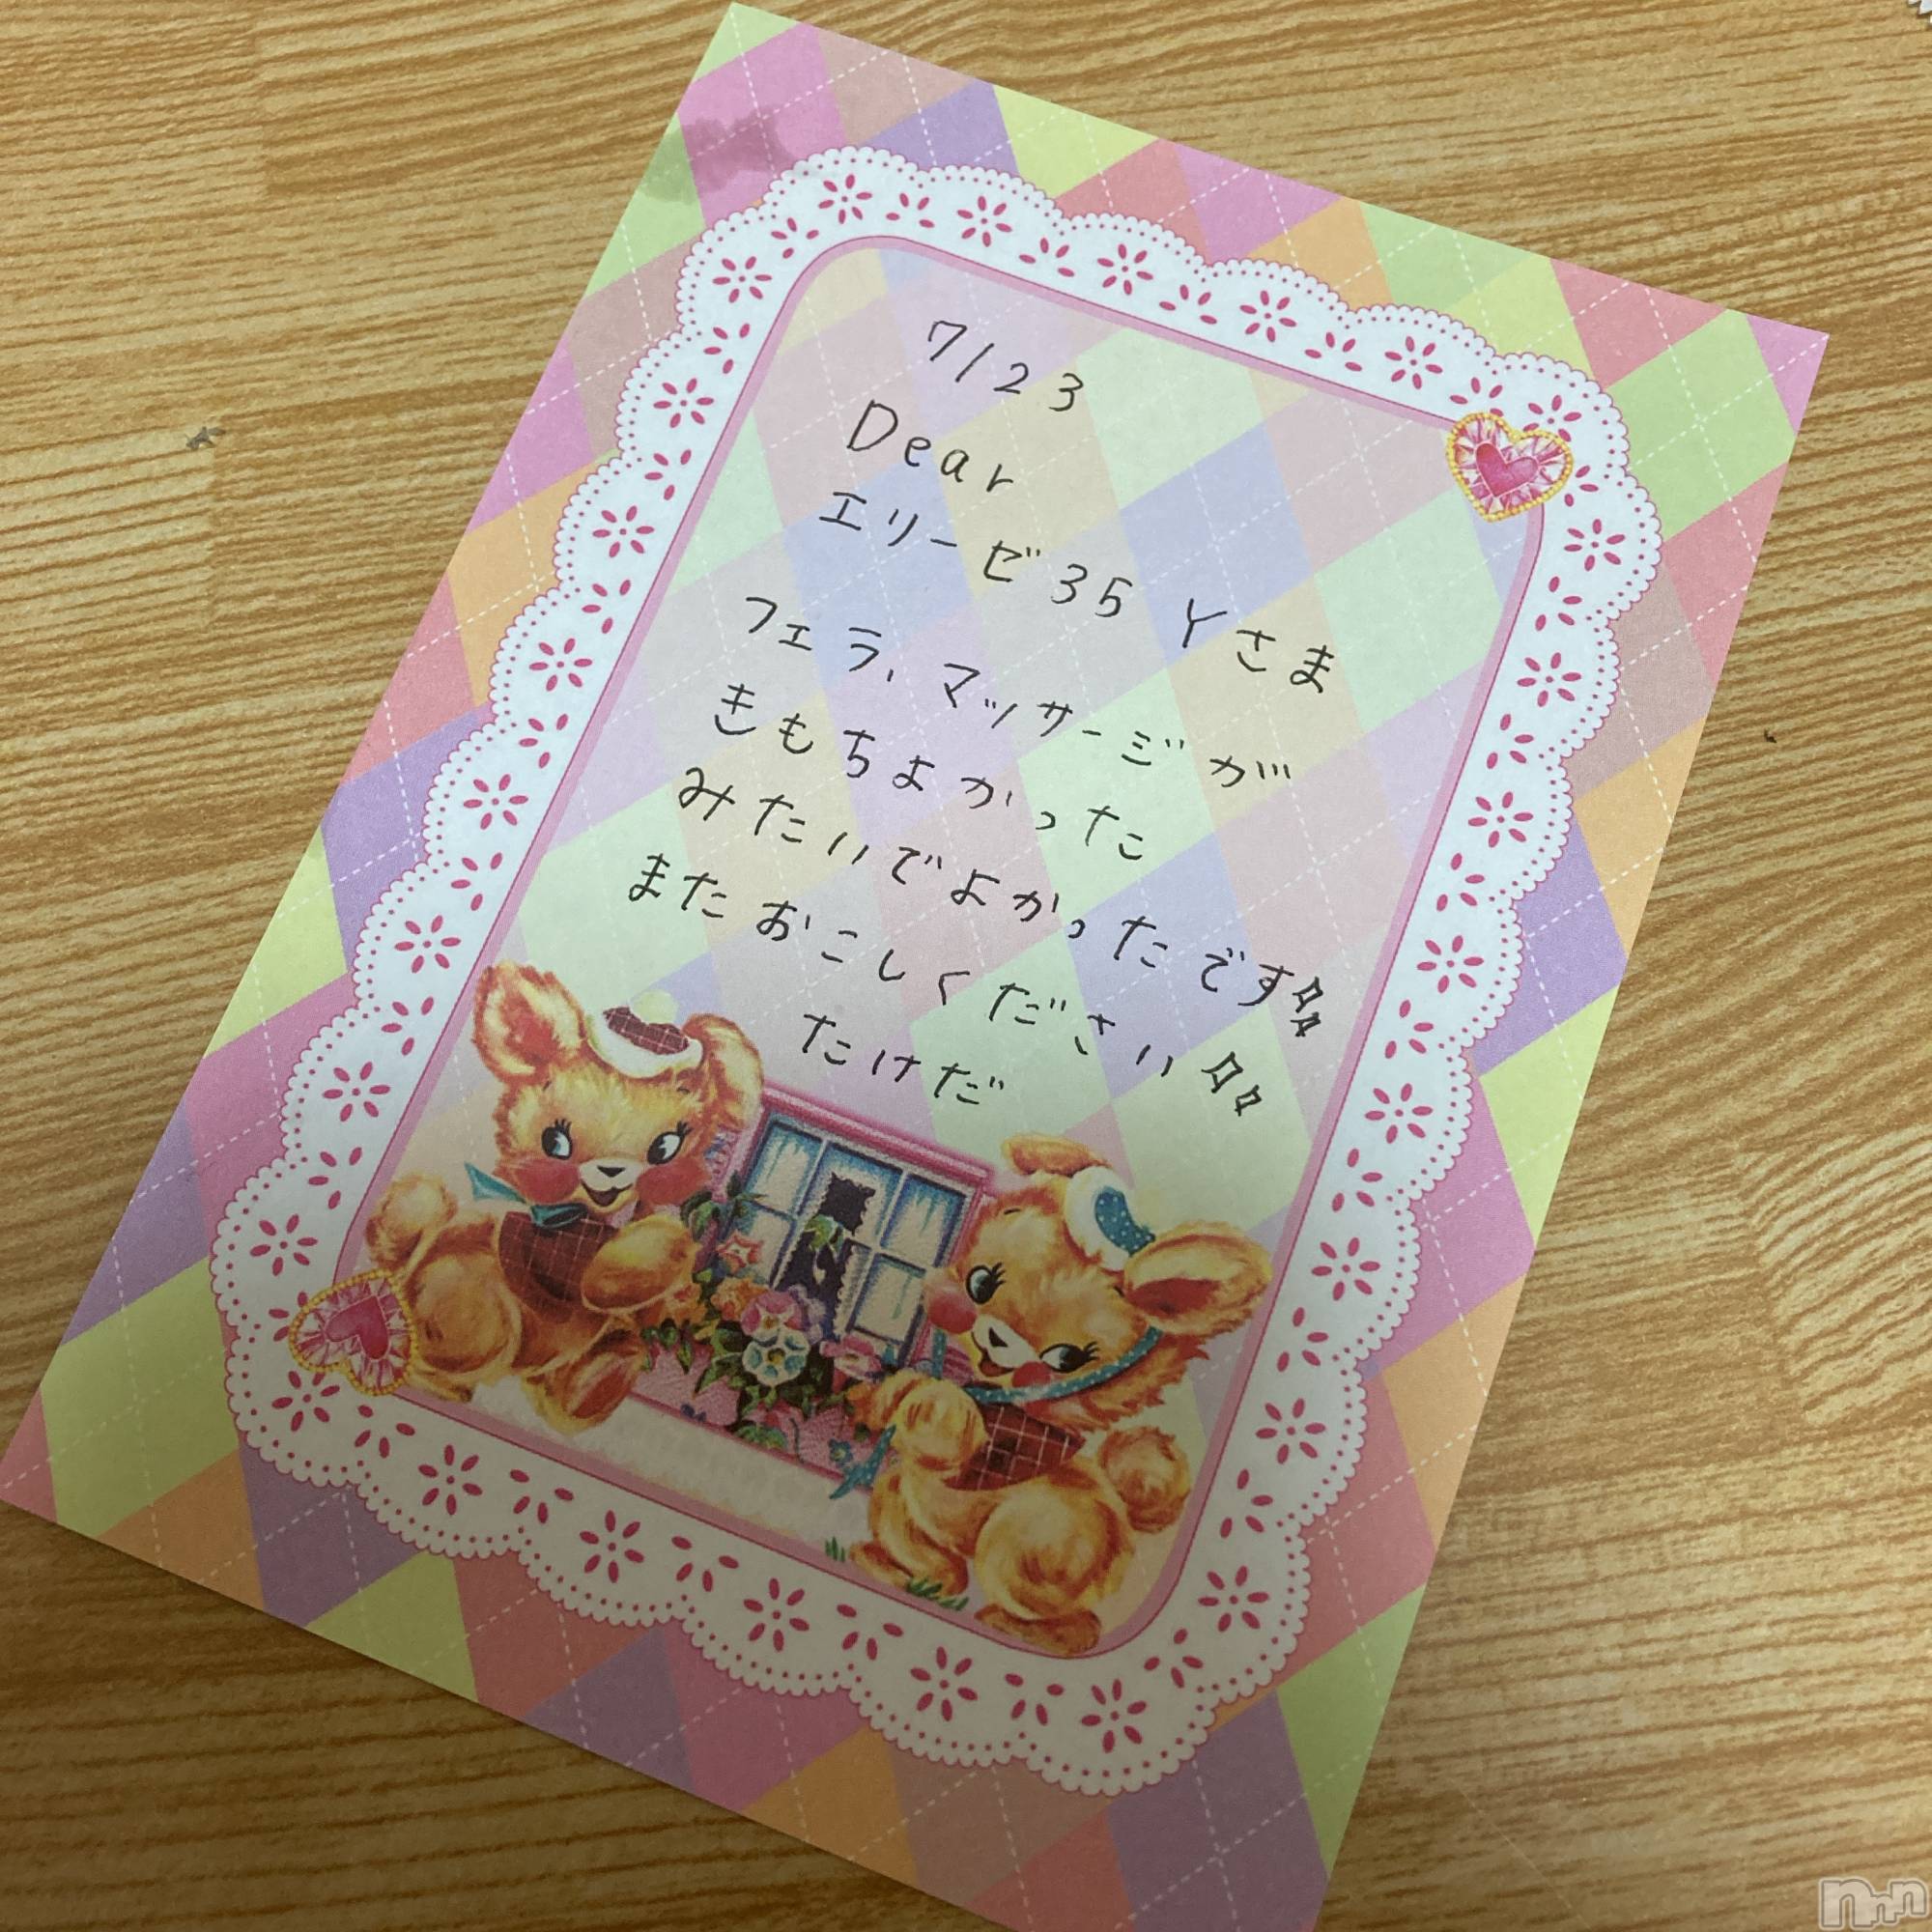 7/23
Dear
エリーゼ35 Yさま
フェラ、マッサージが
きもちよかった
みたいでよかったです
またおこしください
たけだ
nmn